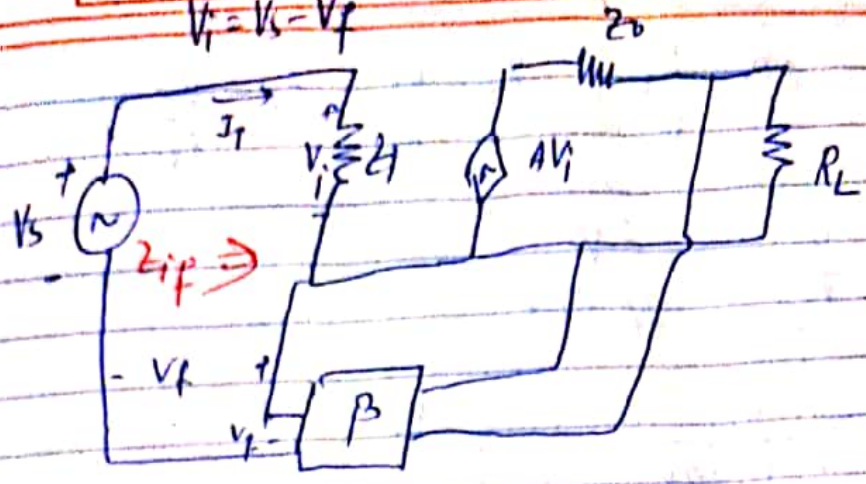 Vi = Vs - Vf
Zo
I1
+
Vi
Zi
AVi
RL
Vs
-
Zif ⇒
- Vf +
β
Vf -